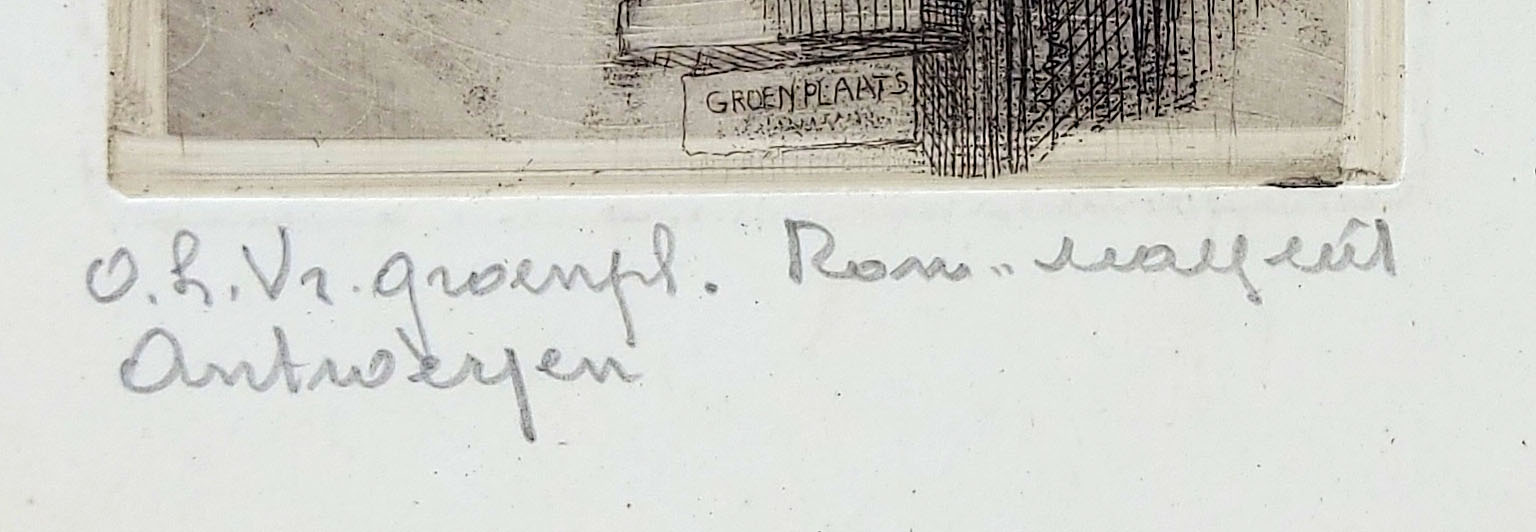 GROENPLAATS
O.L.Vr. groenpl. Rom.
Antwerpen